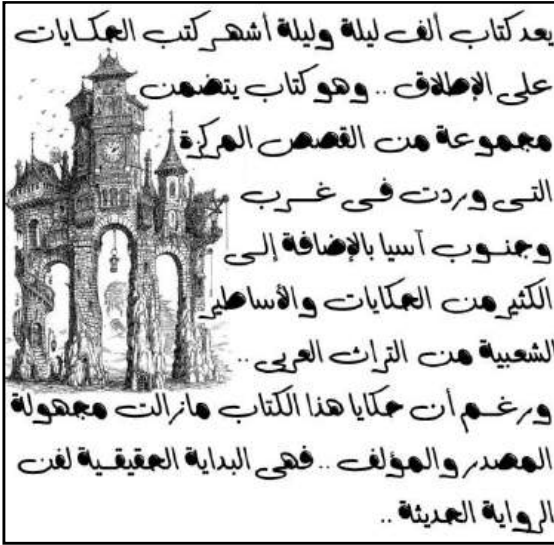 يعد كتاب ألف ليلة وليلة أشهر كتب الحكايات
على الإطلاق .. وهو كتاب يتضمن
مجموعة من القصص المركزة
التى وردت فى غرب
وجنوب آسيا بالإضافة إلى
الكثير من الحكايات والأساطير
الشعبية من التراث العربى ..
ورغم أن حكايا هذا الكتاب مازالت مجهولة
المصدر والمؤلف .. فهى البداية الحقيقية لفن
الرواية الحديثة ..